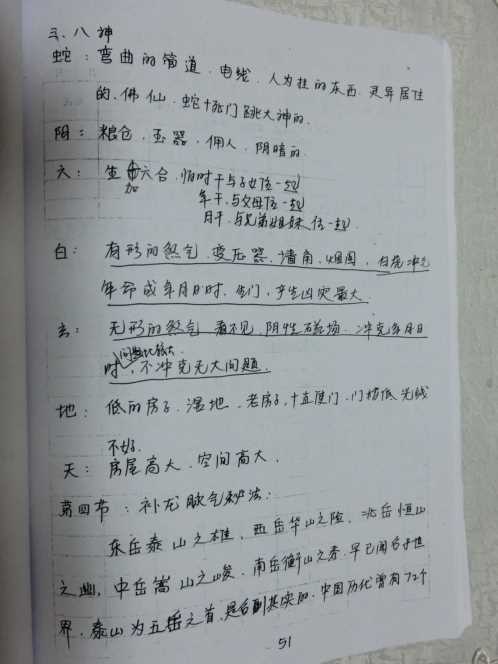 三、八神
蛇：弯曲的管道、电线、人为挂的东西、灵异居住
的、佛仙、蛇+死门跳大神的、
阴：粮仓、玉器、佣人、阴暗的
六：生+六合、怕时干与子女位一起
加
年干、与父母位一起
月干、与兄弟姐妹位一起、
白：有形的煞气、变压器、墙角、烟囱、白虎冲克
年命或年月日时、伤门、产生凶灾最大、
玄：无形的煞气、看不见、阴性磁场、冲克年月日
问题比较大
时、不冲克无大问题、
地：低的房子、湿地、老房子、+直度门、门楼低、光线
不好、
天：房屋高大、空间高大、
第四节：补龙脉气秘法：
东岳泰山之雄，西岳华山之险，北岳恒山
之幽，中岳嵩山之峻，南岳衡山之秀，早已闻名于世
界，泰山为五岳之首，是名副其实的，中国历代曾有72个
51